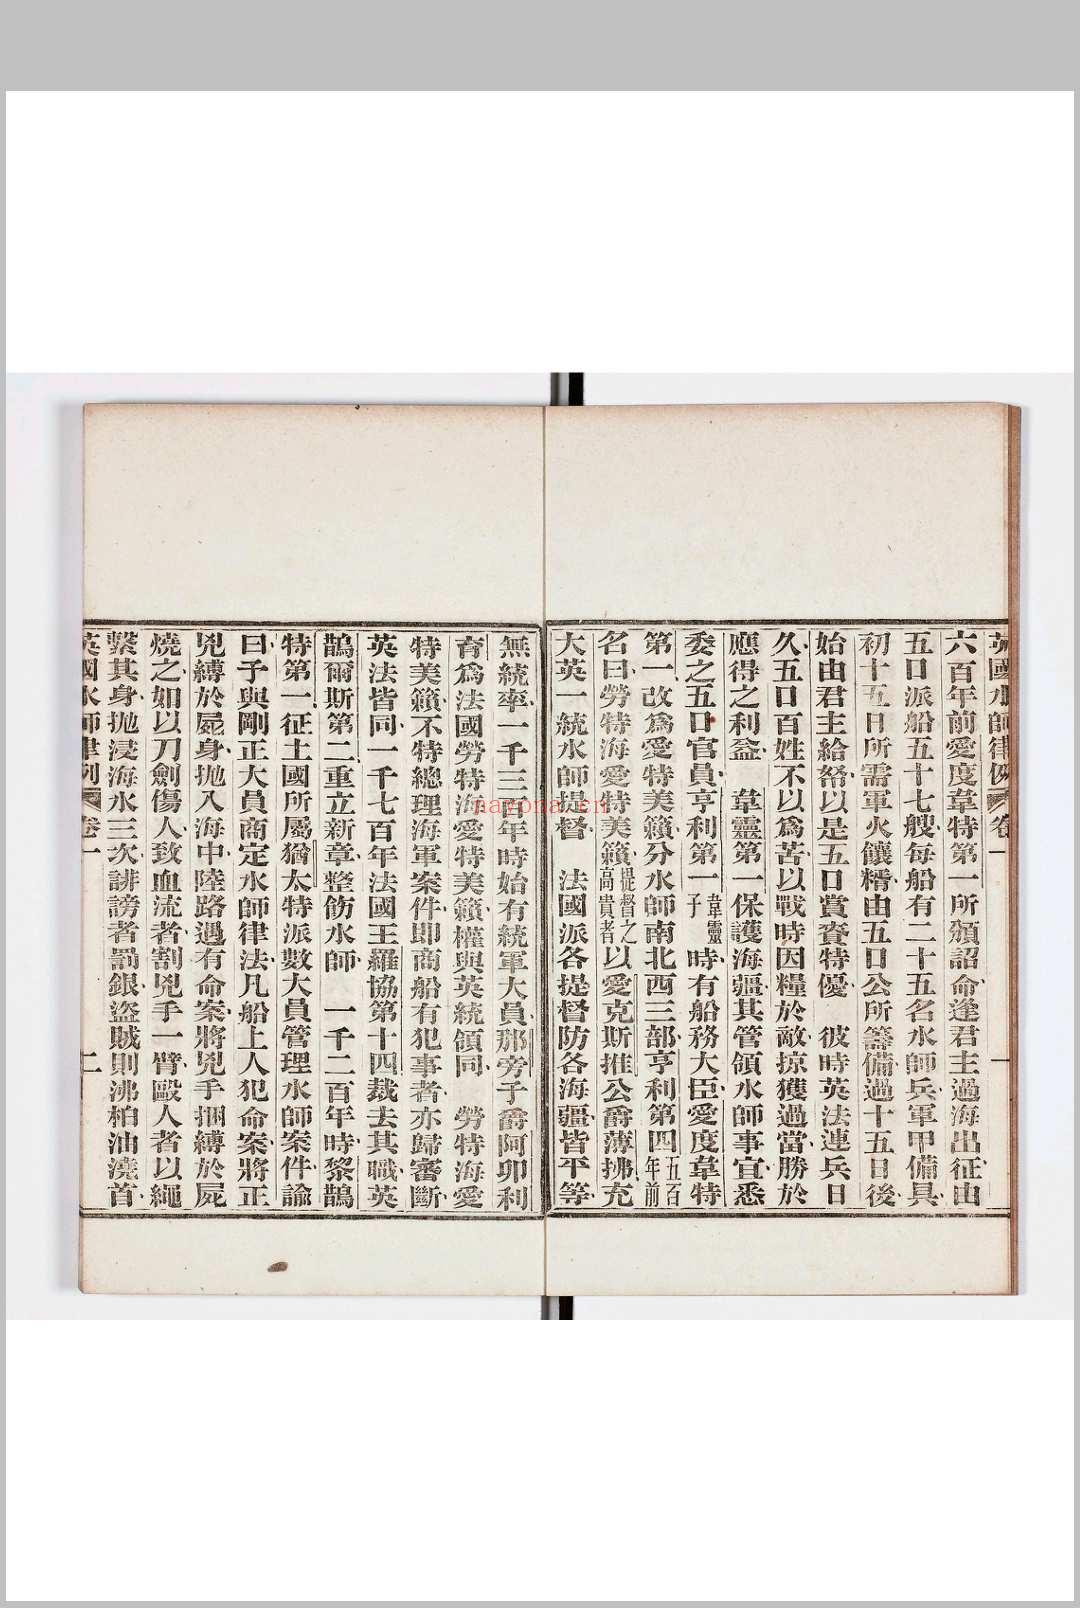 英國水師律例 卷一 一
六百年前愛度韋特第一所頒詔命逢君主過海出征由
五口派船五十七艘每船有二十五名水師兵軍甲備具
初十五日所需軍火饟糈由五口公所籌備過十五日後
始由君主給帑以是五口賞賚特優 彼時英法連兵日
久五口百姓不以爲苦以戰時因糧於敵掠獲過當勝於
應得之利益 韋靈第一保護海疆其管領水師事宜悉
委之五口官員亨利第一韋靈子 時有船務大臣愛度韋特
第一改爲愛特美籟分水師南北西三部亨利第四五百年前
名曰勞特海愛特美籟提督之高貴者以愛克斯推公爵薄拂充
大英一統水師提督 法國派各提督防各海疆皆平等
無統率一千三百年時始有統軍大員那旁子爵阿卯利
育爲法國勞特海愛特美籟權與英統領同 勞特海愛
特美籟不特總理海軍案件即商船有犯事者亦歸審斷
英法皆同一千七百年法國王羅協第十四裁去其職英
鵲爾斯第二重立新章整飭水師 一千二百年時黎鵲
特第一征土國所屬猶太特派數大員管理水師案件諭
曰予與剛正大員商定水師律法凡船上人犯命案將正
兇縛於屍身拋入海中陸路遇有命案將兇手捆縛於屍
燒之如以刀劍傷人致血流者割兇手一臂毆人者以繩
繫其身拋浸海水三次誹謗者罰銀盜賊則沸柏油澆首
英國水師律例 卷一 二
nayona.cn